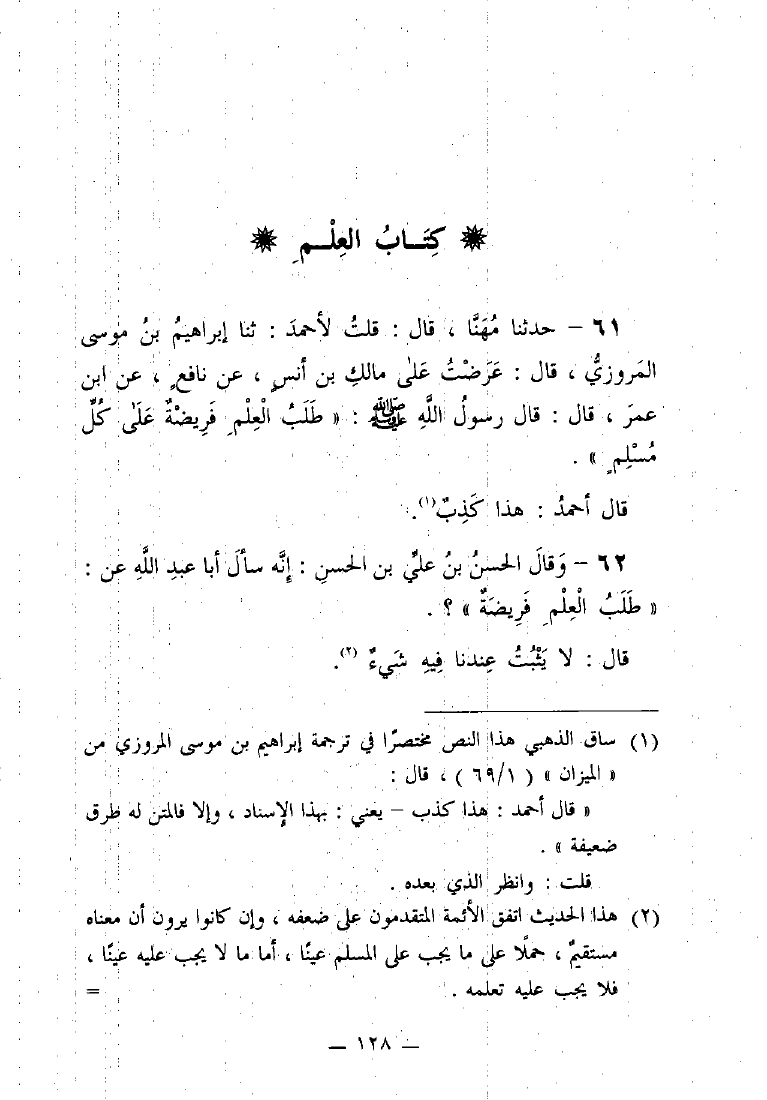 كِتَـابُ العِلْـمِ
٦١ – حدثنا مُهَنَّا ، قال : قلتُ لأحمدَ : ثنا إبراهيمُ بنُ موسى
المَروزيُّ ، قال : عَرَضْتُ عَلىٰ مالكِ بن أنسٍ ، عن نافعٍ ، عن ابن
عمرَ ، قال : قال رسولُ اللَّهِ ﷺ : « طَلَبُ الْعِلْمِ فَرِيضَةٌ عَلَىٰ كُلِّ
مُسْلِمٍ » .
قال أحمدُ : هذا كَذِبٌ(١).
٦٢ – وَقالَ الحسنُ بنُ عليِّ بن الحسنِ : إنَّه سألَ أبا عبدِ اللَّهِ عن :
« طَلَبُ الْعِلْمِ فَرِيضَةٌ » ؟ .
قال : لا يَثْبُتُ عِندنا فِيهِ شَيءٌ (٢).
(١) ساق الذهبي هذا النص مختصرًا في ترجمة إبراهيم بن موسى المروزي من
« الميزان » ( ٦٩/١ ) ، قال :
« قال أحمد : هذا كذب – يعني : بهذا الإسناد ، وإلا فالمتن له طرق
ضعيفة » .
قلت : وانظر الذي بعده .
(٢) هذا الحديث اتفق الأئمة المتقدمون على ضعفه ، وإن كانوا يرون أن معناه
مستقيمٌ ، حملًا على ما يجب على المسلم عينًا ، أما ما لا يجب عليه عينًا ،
فلا يجب عليه تعلمه . =
– ١٢٨ –